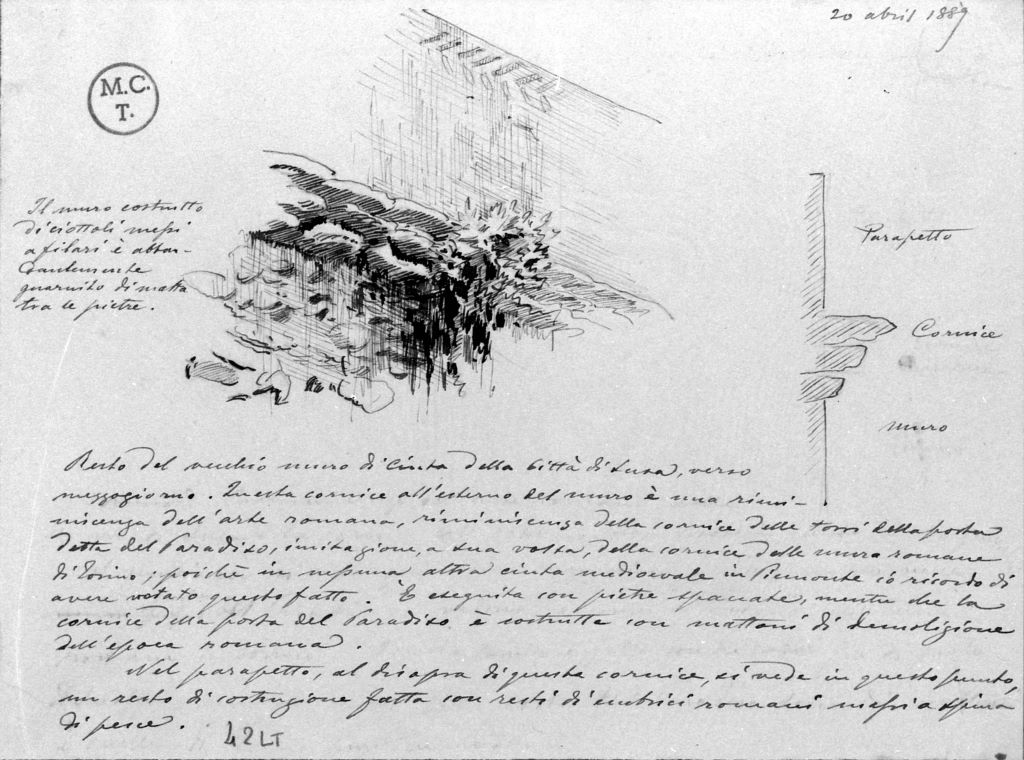 20 abril 1889
M.C.
T.
Il muro costrutto
di ciottoli messi
a filari è abbon-
dantemente
guarnito di malta
tra le pietre.
Parapetto
Cornice
muro
Resto del vecchio muro di cinta della Città di Susa, verso
mezzogiorno. Questa cornice all'esterno del muro è una rimi-
niscenza dell'arte romana, riminiscenza della cornice delle torri della porta
detta del Paradiso, imitazione, a sua volta, della cornice delle mura romane
di Torino; poichè in nessuna altra cinta medioevale in Piemonte io ricordo di
avere notato questo fatto. È eseguita con pietre spaccate, mentre che la
cornice della porta del Paradiso è costrutta con mattoni di demolizione
dell'epoca romana.
Nel parapetto, al disopra di questa cornice, si vede in questo punto,
un resto di costruzione fatta con resti di embrici romani messi a spina
di pesce.
42LT